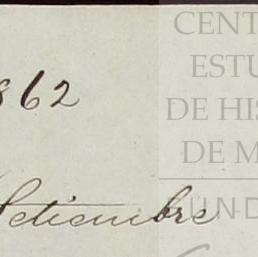 862
Setiembre
CENT
ESTU
DE HIS
DE M